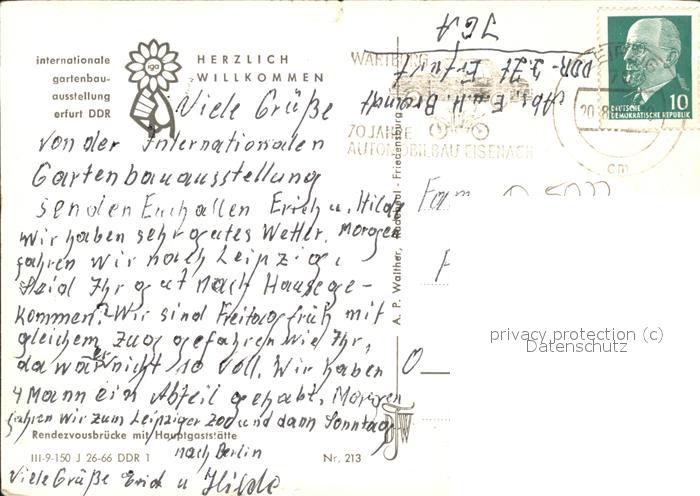 internationale
gartenbau-
ausstellung
erfurt DDR
iga
HERZLICH
WILLKOMMEN
Viele Grüße
von der Internationalen
Gartenbauausstellung
senden Euch allen Erich u. Hilde
Wir haben sehr gutes Wetter. Morgen
fahren wir nach Leipzig.
Seid Ihr gut nach Hause ge-
kommen? Wir sind Freitag früh mit
gleichem Zug gefahren wie Ihr,
da war er nicht so voll. Wir haben
4 Mann ein Abteil gehabt. Morgen
fahren wir zum Leipziger Zoo und dann Sonntag
nach Berlin
Viele Grüße Erich u Hilde
Rendezvousbrücke mit Hauptgaststätte
III-9-150 J 26-66 DDR 1
Nr. 213
A. P. Walther, Radebeul - Friedensburg
Abs. E. u. H. Brandt
DDR-3.Zt. Erfurt
IGA
WARTBURG
70 JAHRE
AUTOMOBILBAU EISENACH
10
DEUTSCHE
DEMOKRATISCHE REPUBLIK
Fam.
privacy protection (c)
Datenschutz